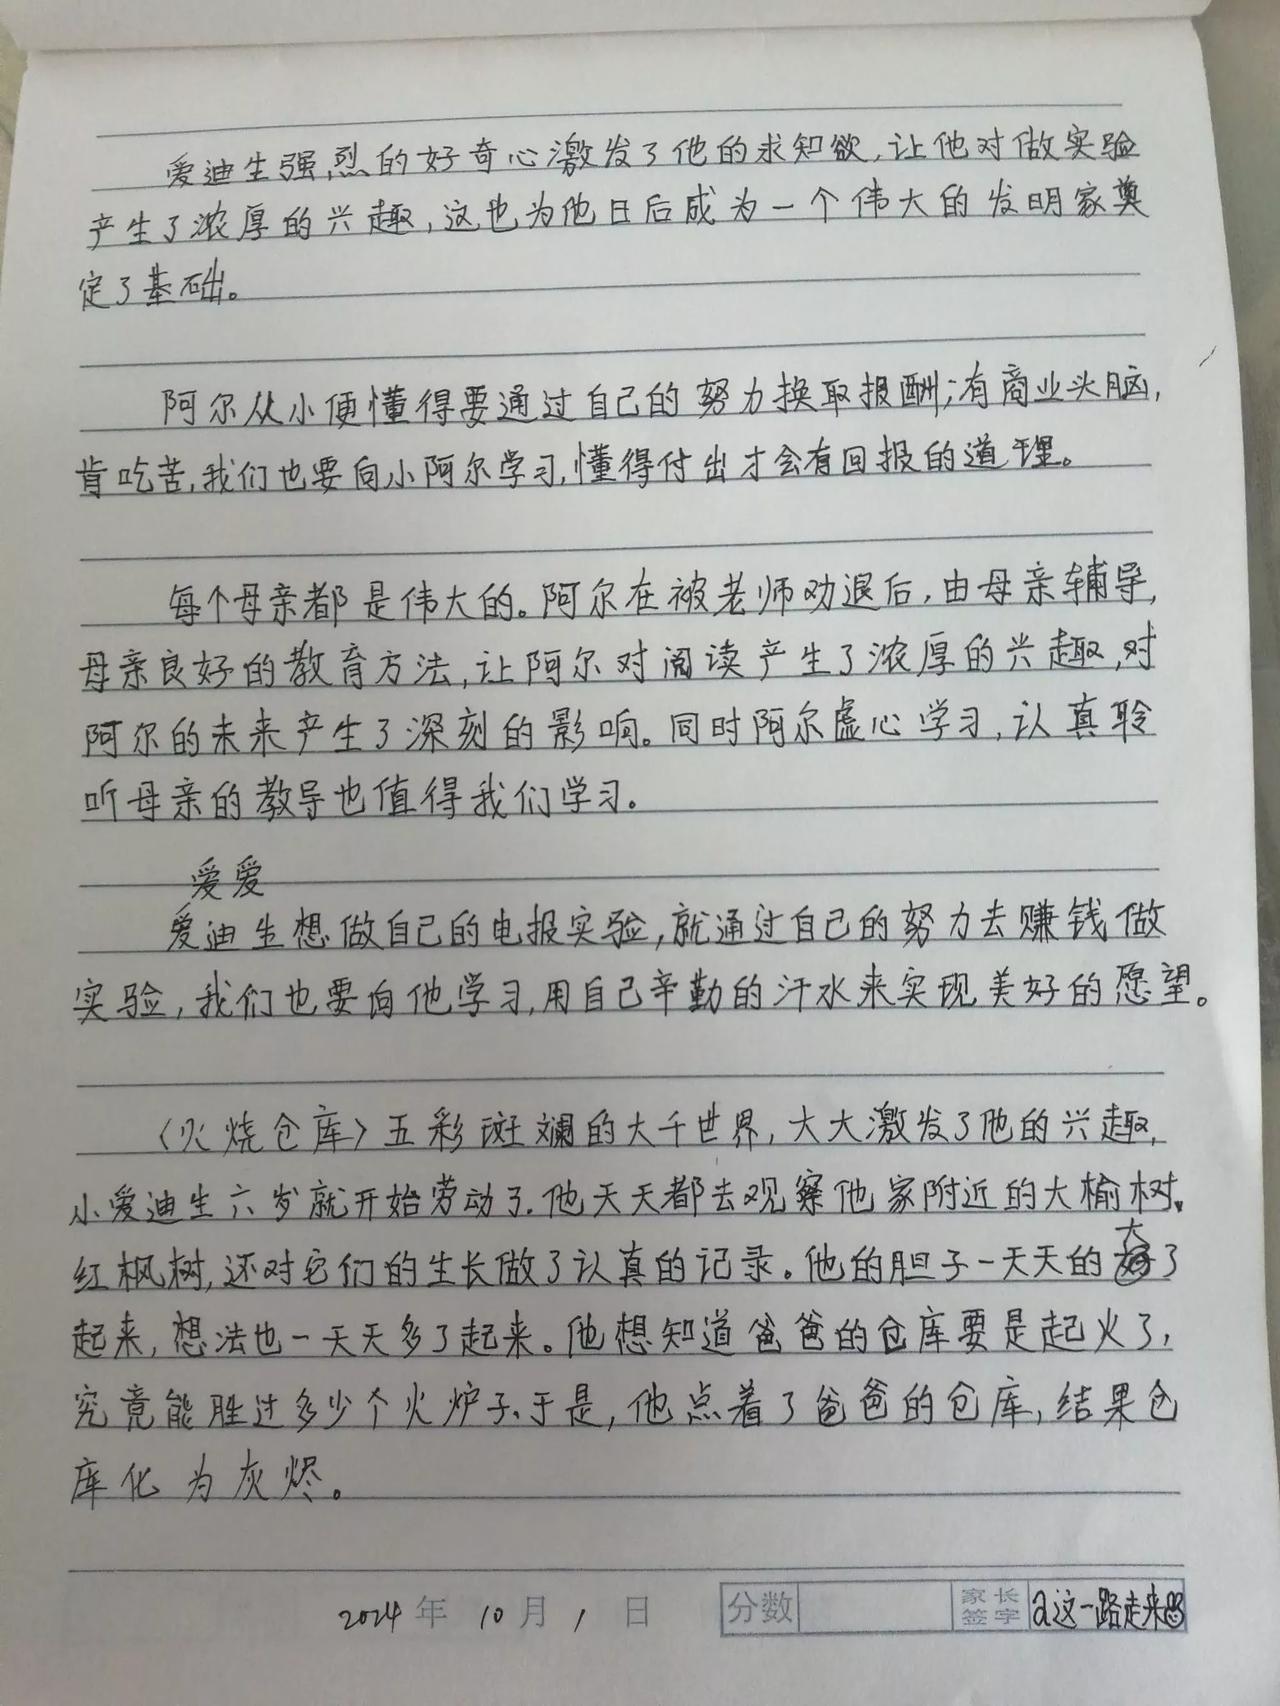 爱迪生强烈的好奇心激发了他的求知欲,让他对做实验
产生了浓厚的兴趣,这也为他日后成为一个伟大的发明家奠
定了基础。
阿尔从小便懂得要通过自己的努力换取报酬;有商业头脑,
肯吃苦,我们也要向小阿尔学习,懂得付出才会有回报的道理。
每个母亲都是伟大的。阿尔在被老师劝退后,由母亲辅导,
母亲良好的教育方法,让阿尔对阅读产生了浓厚的兴趣,对
阿尔的未来产生了深刻的影响。同时阿尔虚心学习,认真聆
听母亲的教导也值得我们学习。
爱爱
爱迪生想做自己的电报实验,就通过自己的努力去赚钱做
实验,我们也要向他学习,用自己辛勤的汗水来实现美好的愿望。
〈火烧仓库〉五彩斑斓的大千世界,大大激发了他的兴趣,
小爱迪生六岁就开始劳动了.他天天都去观察他家附近的大榆树、
红枫树,还对它们的生长做了认真的记录。他的胆子一天天的大了
起来,想法也一天天多了起来。他想知道爸爸的仓库要是起火了,
究竟能胜过多少个火炉子、于是,他点着了爸爸的仓库,结果仓
库化为灰烬。
2024年10月1日 分数 家长签字 a这一路走来